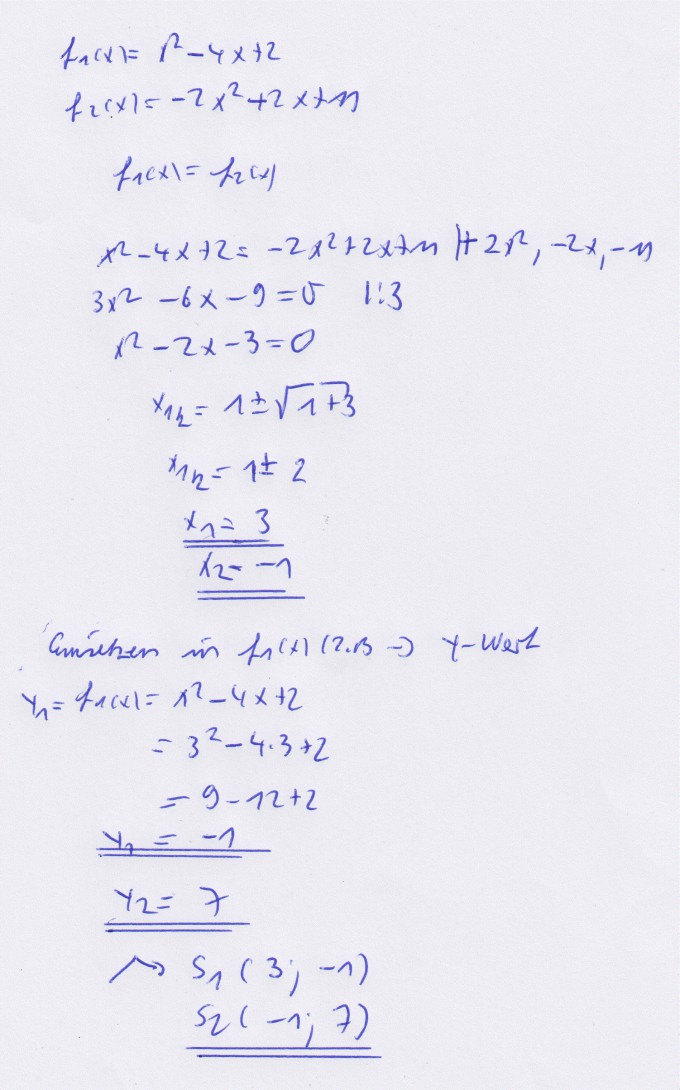 f₁(x)= x²-4x+2
f₂(x)= -2x²+2x+11
f₁(x)= f₂(x)
x²-4x+2= -2x²+2x+11 |+2x², -2x, -11
3x² -6x-9=0 |:3
x²-2x-3=0
x₁/₂= 1±√1+3
x₁/₂= 1± 2
x₁= 3
x₂= -1
Einsetzen in f₁(x) (z.B → y-Wert
y₁= f₁(x)= x²-4x+2
= 3²-4·3+2
= 9-12+2
y₁ = -1
y₂= 7
⇝ S₁ (3; -1)
S₂ (-1; 7)